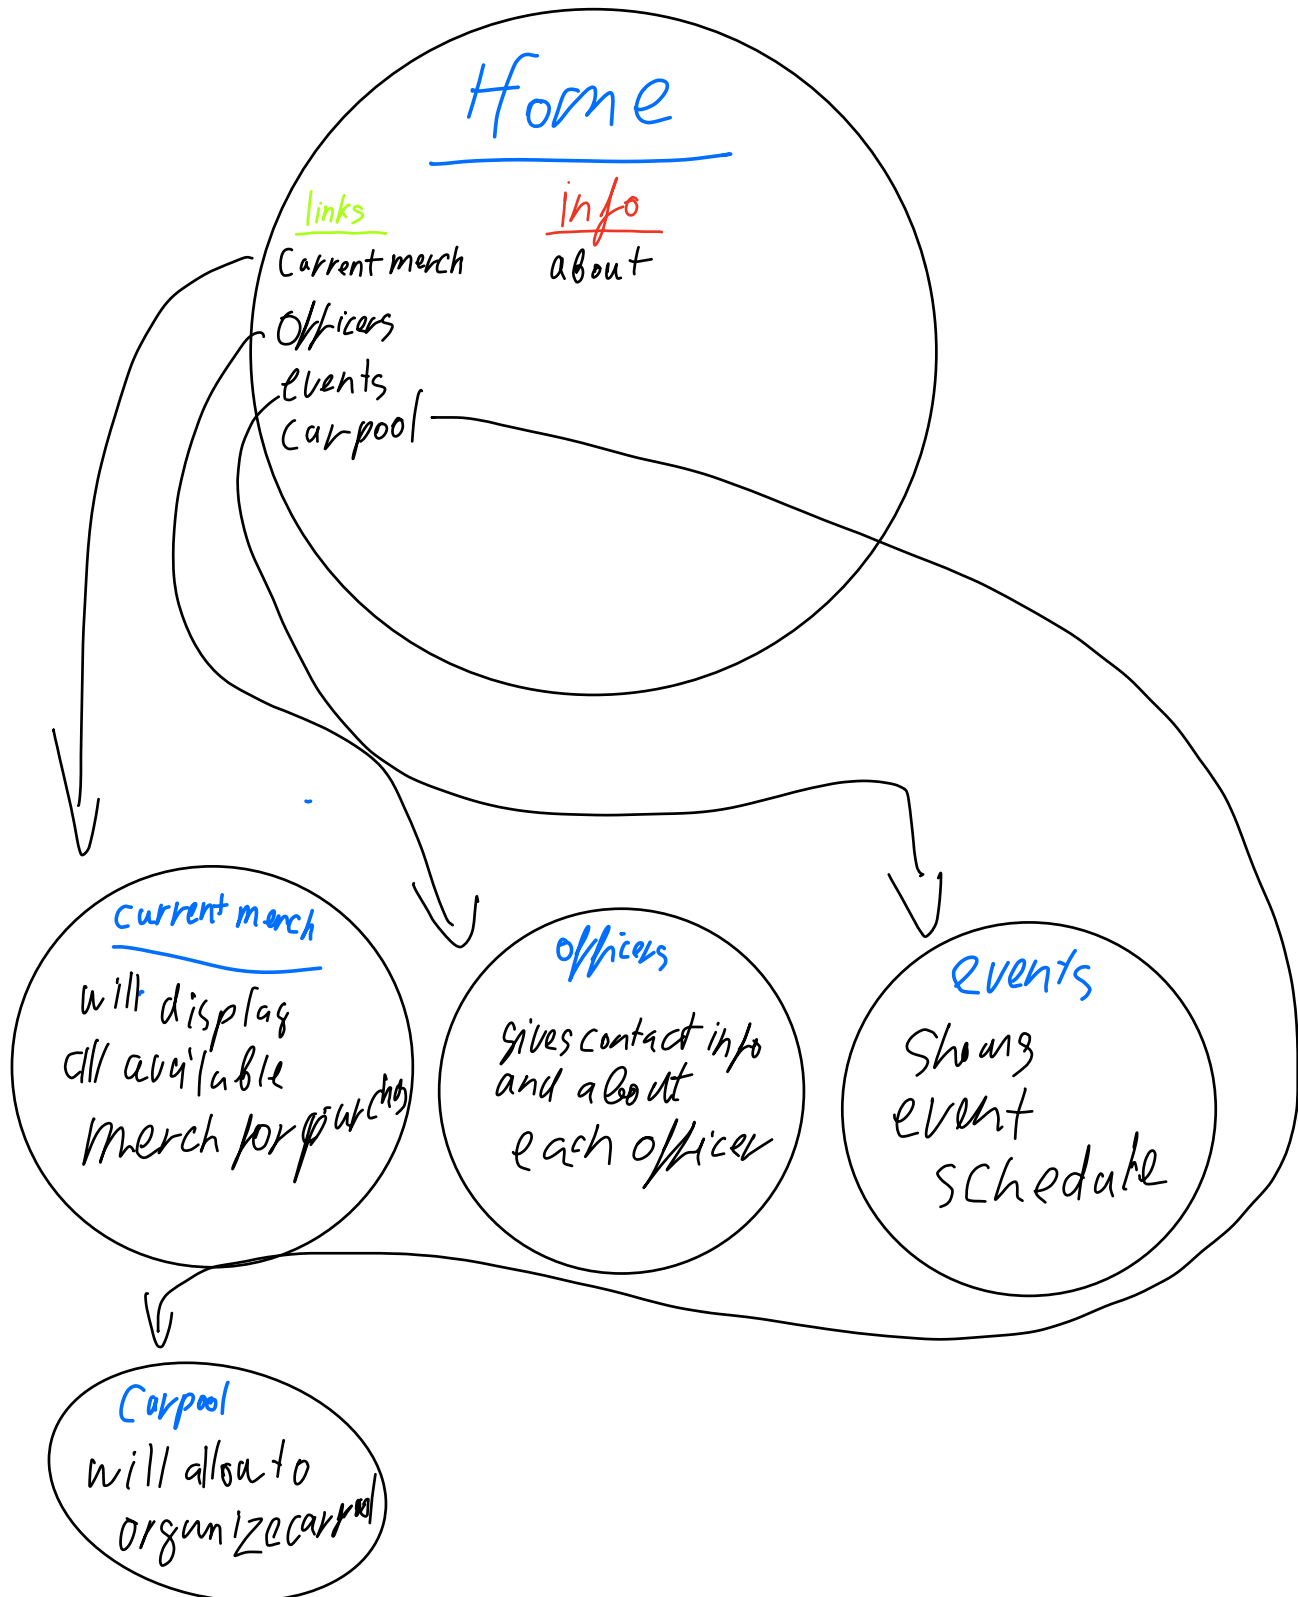 Home
links
info
Current merch
about
Officers
events
Carpool
current merch
will display
all available
merch for purchas
Officers
gives contact info
and about
each officer
events
Shows
event
schedule
Carpool
will allow to
organize carpool